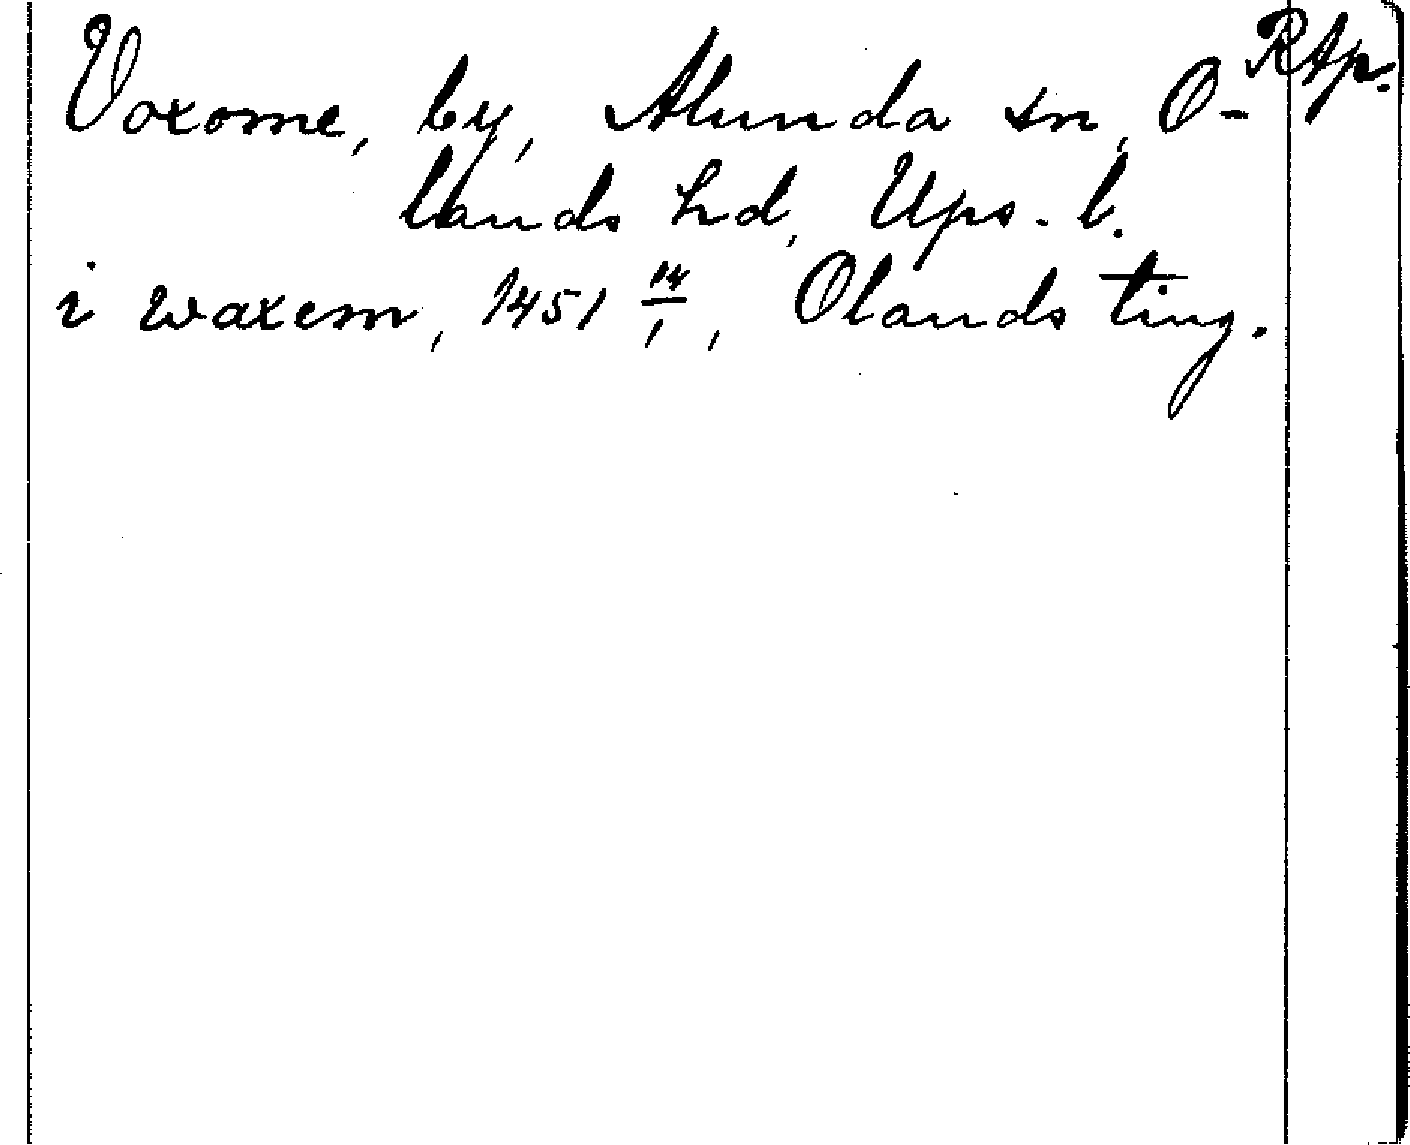 RAp.
Voxome, by, Alunda sn, O-
lands hd, Ups. l.
i waxem, 1451 14/1, Olands ting.